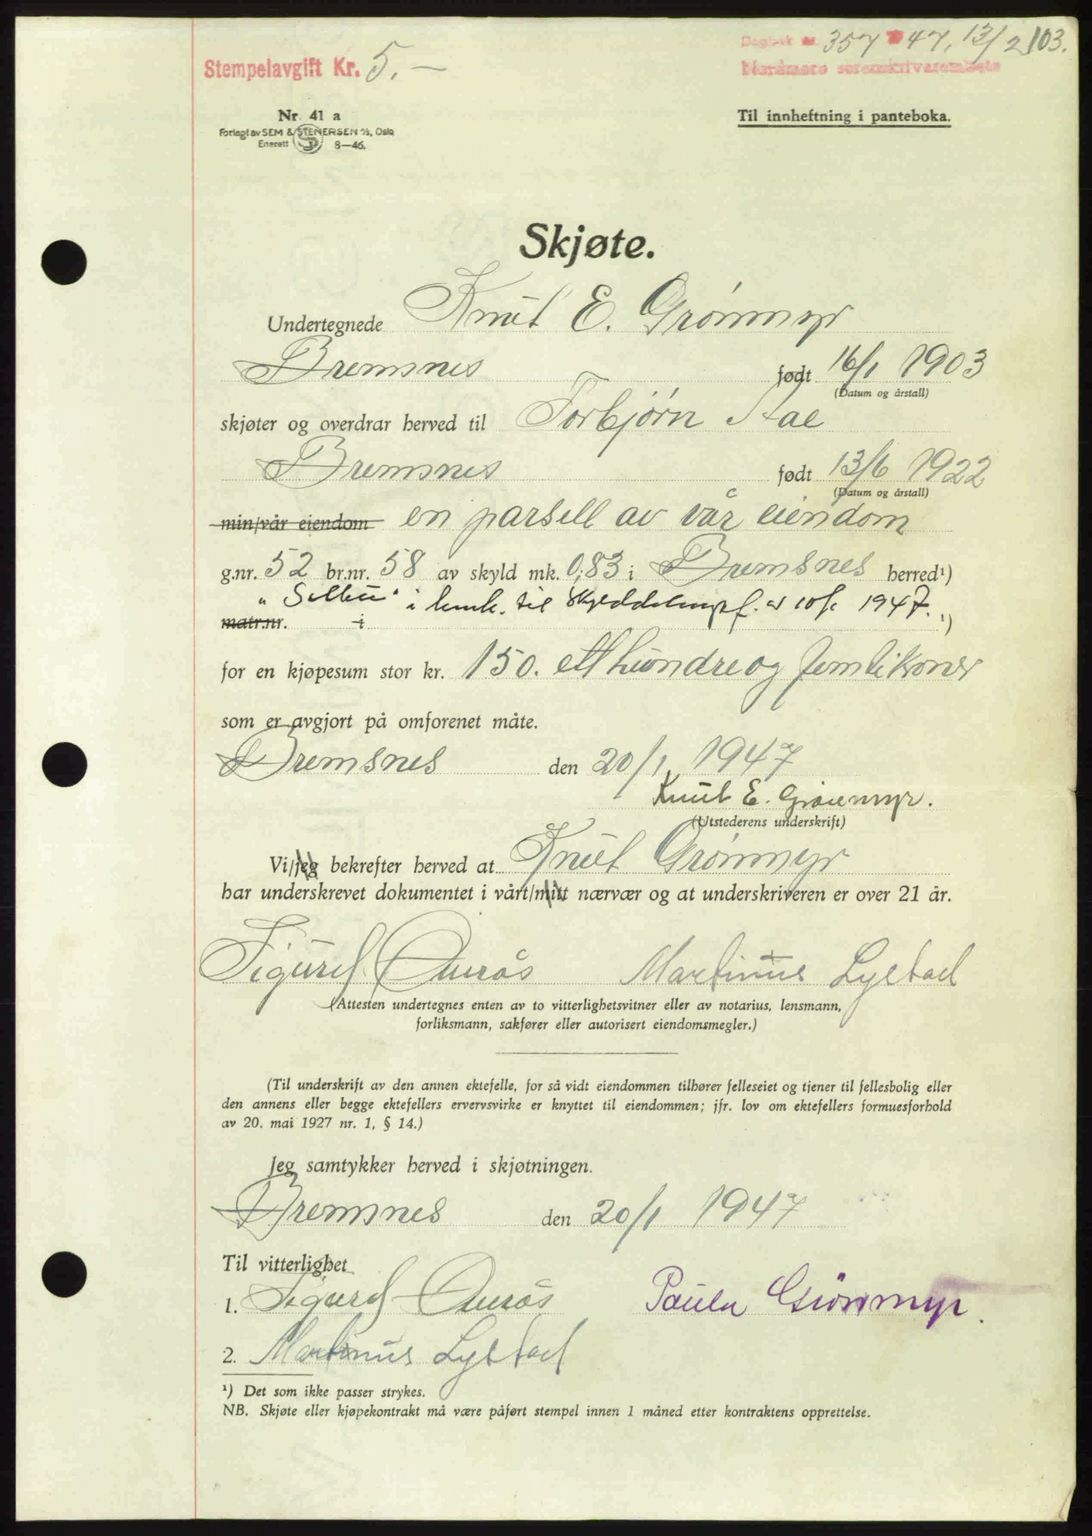 Stempelavgift Kr. 5.—
Dagbok nr. 357 47, 13/2 103.
Nordmøre sorenskriverembete
Nr 41 a
Forlagt av SEM & STENERSEN A/S, Oslo
Enerett 8-46.
Til innheftning i panteboka.
Skjøte.
Undertegnede Knut E. Grønmyr
Bremsnes født 16/1 1903
(Datum og årstall)
skjøter og overdrar herved til Torbjørn Aae
Bremsnes født 13/6 1922
(Datum og årstall)
min/vår eiendom en parsell av vår eiendom
g.nr. 52 br.nr. 58 av skyld mk. 0,83 i Bremsnes herred¹)
i henh. til 1947.
matr.nr. i ¹)
for en kjøpesum stor kr. 150. etthundreogfemtikroner
som er avgjort på omforenet måte.
Bremsnes den 20/1 1947
Knut E. Grønmyr.
(Utstederens underskrift)
Vi/jeg bekrefter herved at Knut Grønmyr
har underskrevet dokumentet i vårt/mitt nærvær og at underskriveren er over 21 år.
Sigurd Aurås Martinus Lystad
(Attesten undertegnes enten av to vitterlighetsvitner eller av notarius, lensmann,
forliksmann, sakfører eller autorisert eiendomsmegler.)
(Til underskrift av den annen ektefelle, for så vidt eiendommen tilhører felleseiet og tjener til fellesbolig eller
den annens eller begge ektefellers ervervsvirke er knyttet til eiendommen; jfr. lov om ektefellers formuesforhold
av 20. mai 1927 nr. 1, § 14.)
Jeg samtykker herved i skjøtningen.
Bremsnes den 20/1 1947
Til vitterlighet
1. Sigurd Aurås Paula Grønmyr.
2. Martinus Lystad
¹) Det som ikke passer strykes.
NB. Skjøte eller kjøpekontrakt må være påført stempel innen 1 måned etter kontraktens opprettelse.